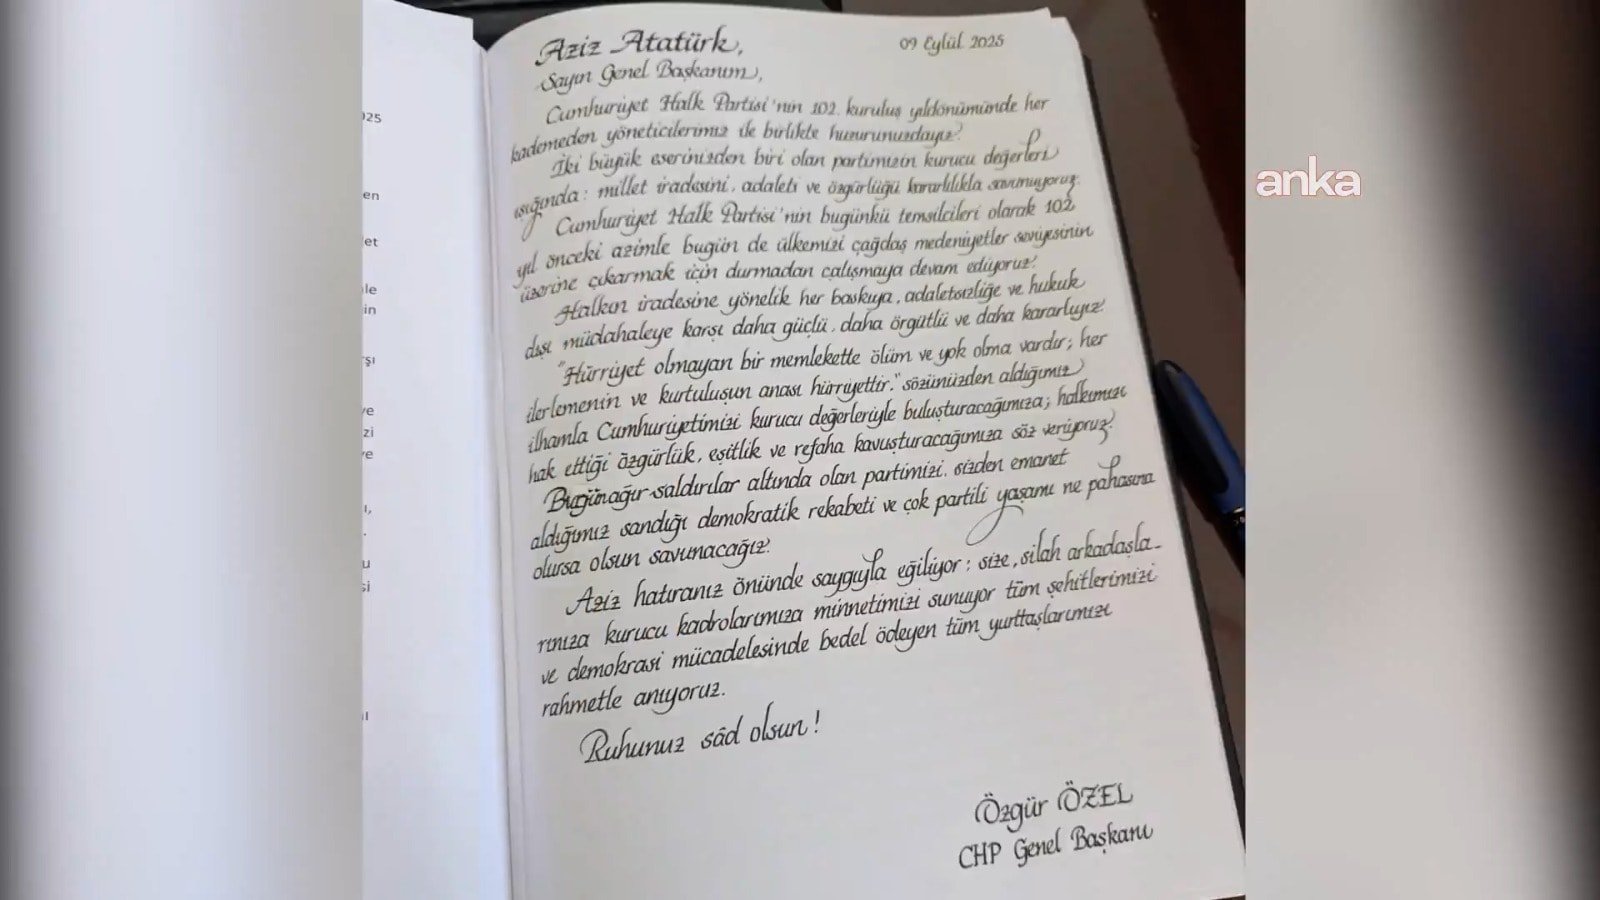 Aziz Atatürk,
09 Eylül 2025
Sayın Genel Başkanım,
Cumhuriyet Halk Partisi'nin 102. kuruluş yıldönümünde her
kademeden yöneticilerimiz ile birlikte huzurunuzdayız.
İki büyük eserinizden biri olan partimizin kurucu değerleri
ışığında; millet iradesini, adaleti ve özgürlüğü kararlılıkla savunuyoruz.
Cumhuriyet Halk Partisi'nin bugünkü temsilcileri olarak 102
yıl önceki azimle bugün de ülkemizi çağdaş medeniyetler seviyesinin
üzerine çıkarmak için durmadan çalışmaya devam ediyoruz.
Halkın iradesine yönelik her baskıya, adaletsizliğe ve hukuk
dışı müdahaleye karşı daha güçlü, daha örgütlü ve daha kararlıyız
"Hürriyet olmayan bir memlekette ölüm ve yok olma vardır; her
ilerlemenin ve kurtuluşun anası hürriyettir." sözünüzden aldığımız
ilhamla Cumhuriyetimizi kurucu değerleriyle buluşturacağımıza; halkımızı
hak ettiği özgürlük, eşitlik ve refaha kavuşturacağımıza söz veriyoruz.
Bugün ağır saldırılar altında olan partimizi, sizden emanet
aldığımız sandığı demokratik rekabeti ve çok partili yaşamı ne pahasına
olursa olsun savunacağız.
Aziz hatıranız önünde saygıyla eğiliyor; size, silah arkadaşla-
rınıza kurucu kadrolarımıza minnetimizi sunuyor tüm şehitlerimizi
ve demokrasi mücadelesinde bedel ödeyen tüm yurttaşlarımızı
rahmetle anıyoruz.
Ruhunuz şâd olsun!
Özgür ÖZEL
CHP Genel Başkanı
anka